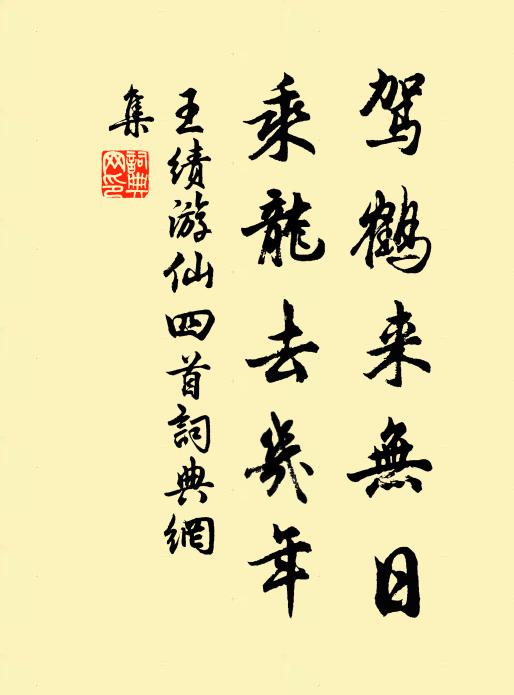 驾鹤来無日
乘龍去幾年
王绩游仙四首詞典網
集
詞典網印